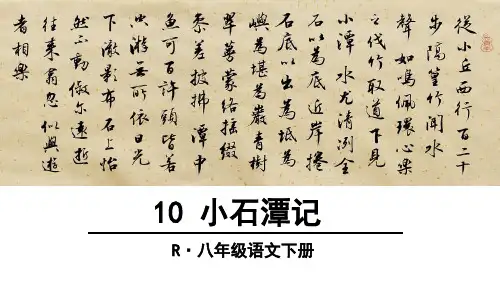 從小丘西行百二十
步隔篁竹聞水
聲如鳴佩環心樂
之伐竹取道下見
小潭水尤清冽全
石以為底近岸捲
石底以出為坻為
嶼為堪為巖青樹
翠蔓蒙絡摇綴
參差披拂潭中
魚可百許頭皆若
空游無所依日光
下澈影布石上怡
然不動俶爾遠逝
往来翕忽似與遊
者相樂
10 小石潭记
R·八年级语文下册